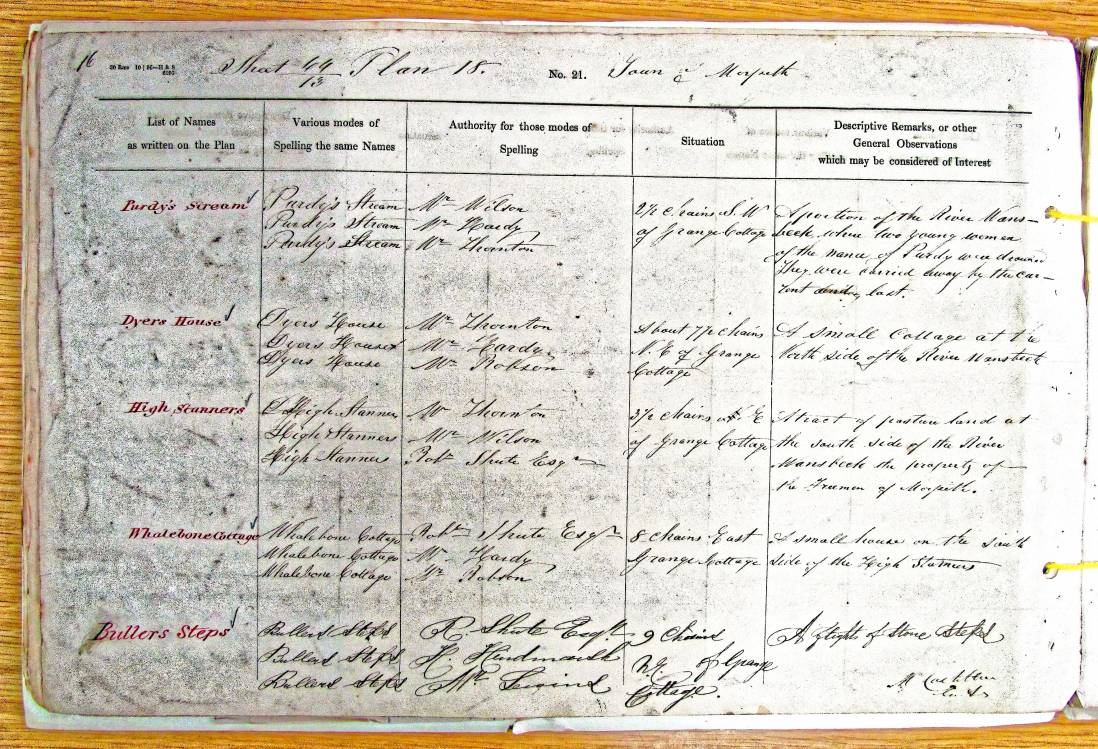 16
Sheet 44/13 Plan 18. No. 21. Town of Morpeth
List of Names
as written on the Plan
Various modes of
Spelling the same Names
Authority for those modes of
Spelling
Situation
Descriptive Remarks, or other
General Observations
which may be considered of Interest
Purdy's Stream
Purdy's Stream
Purdy's Stream
Purdy's Stream
Mr Wilson
Mr Hardy
Mr Thornton
2½ chains S.W
of Grange Cottage
A portion of the River Wans-
beck, where two young women
of the name of Purdy were drowned
They were carried away by the cur-
rent last.
Dyers House
Dyers House
Dyers House
Dyers House
Mr Thornton
Mr Hardy
Mr Robson
About 7½ chains
N.E of Grange
Cottage
A small Cottage at the
North side of the River Wansbeck
High Stanners
High Stanners
High Stanners
High Stanners
Mr Thornton
Mr Wilson
Robt Shute Esqr
3½ chains E
of Grange Cottage
A tract of pasture land at
the south side of the River
Wansbeck the property of
the Freemen of Morpeth.
Whalebone Cottage
Whalebone Cottage
Whalebone Cottage
Whalebone Cottage
Robt Shute Esqr
Mr Hardy
Mr Robson
8 chains East
Grange Cottage
A small house on the South
side of the High Stanners
Bullers Steps
Bullers Steps
Bullers Steps
Bullers Steps
R Shute Esqr
H. Hindmarsh
Mr
9 Chains
of Grange
Cottage.
A flight of Stone Steps